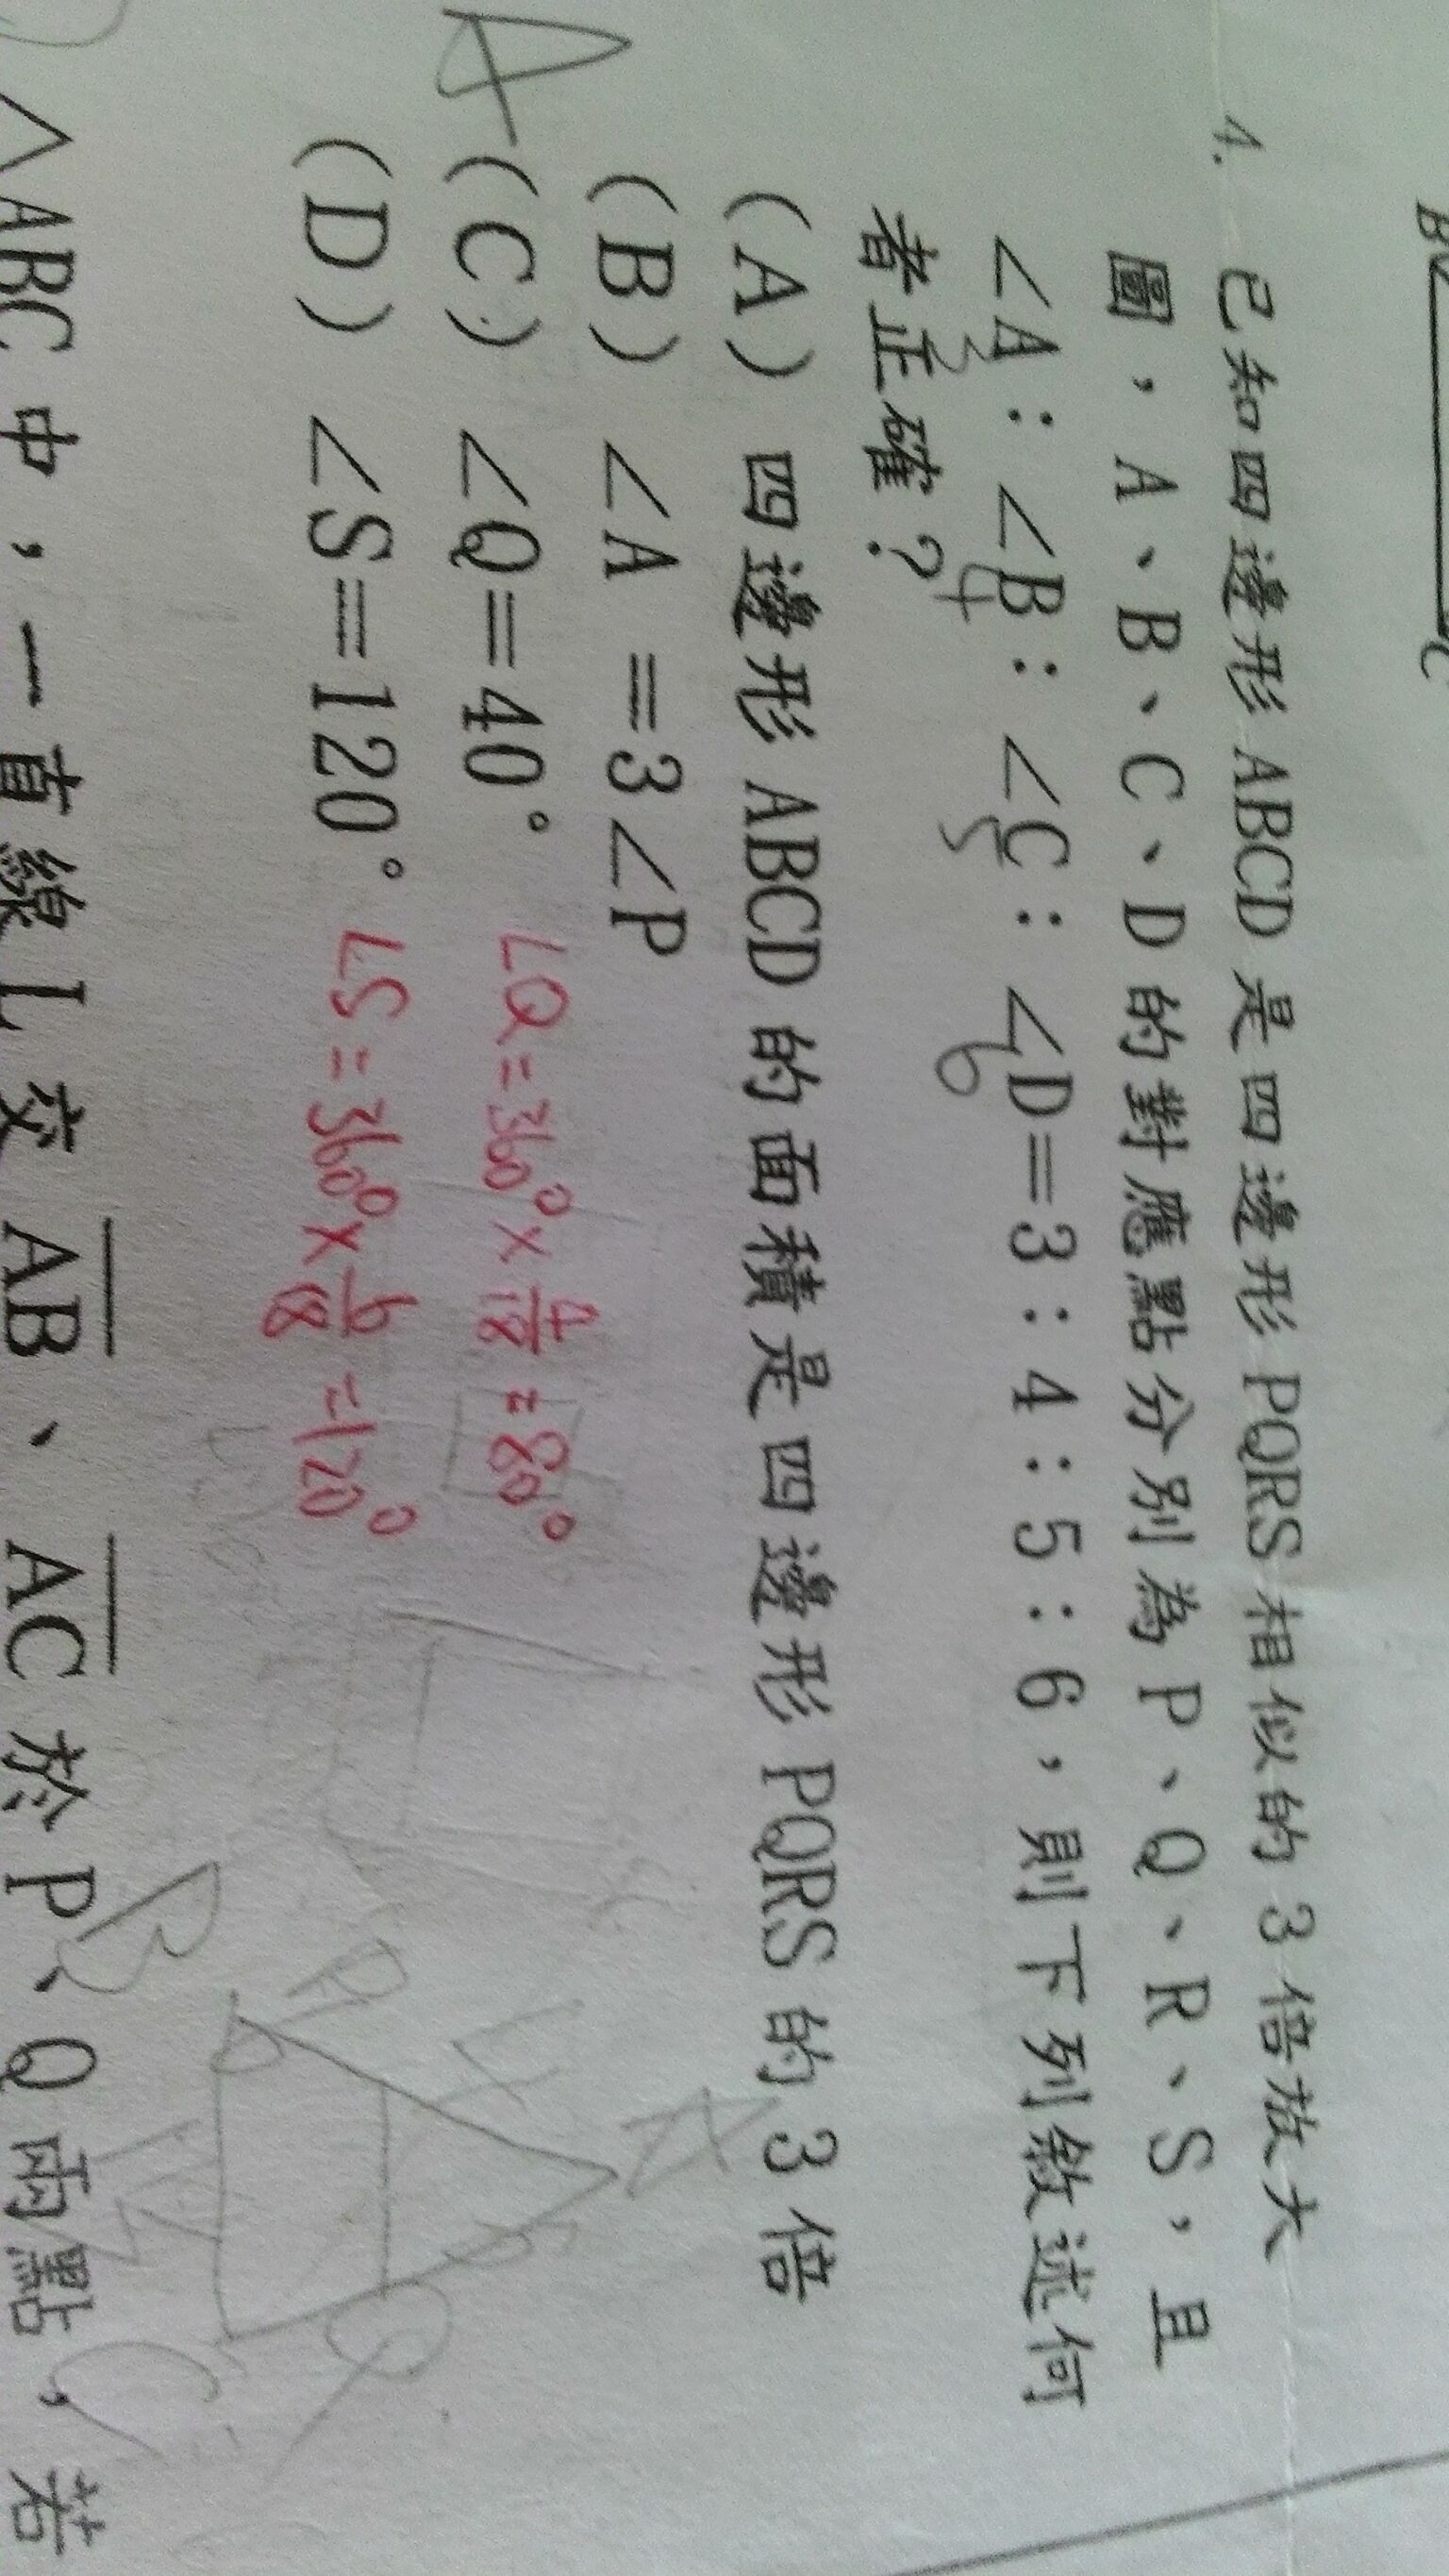 B
C
4. 已知四邊形 ABCD 是四邊形 PQRS 相似的 3 倍放大
圖，A、B、C、D 的對應點分別為 P、Q、R、S，且
∠A：∠B：∠C：∠D＝3：4：5：6，則下列敘述何
3 4 5 6
者正確？
(A) 四邊形 ABCD 的面積是四邊形 PQRS 的 3 倍
(B) ∠A ＝3∠P
(C) ∠Q＝40° ∠Q = 360° × 4/18 = 80°
(D) ∠S＝120° ∠S = 360° × 6/18 = 120°
A
P
Q
B
C
△ABC 中，一直線 L 交 AB、AC 於 P、Q 兩點，若